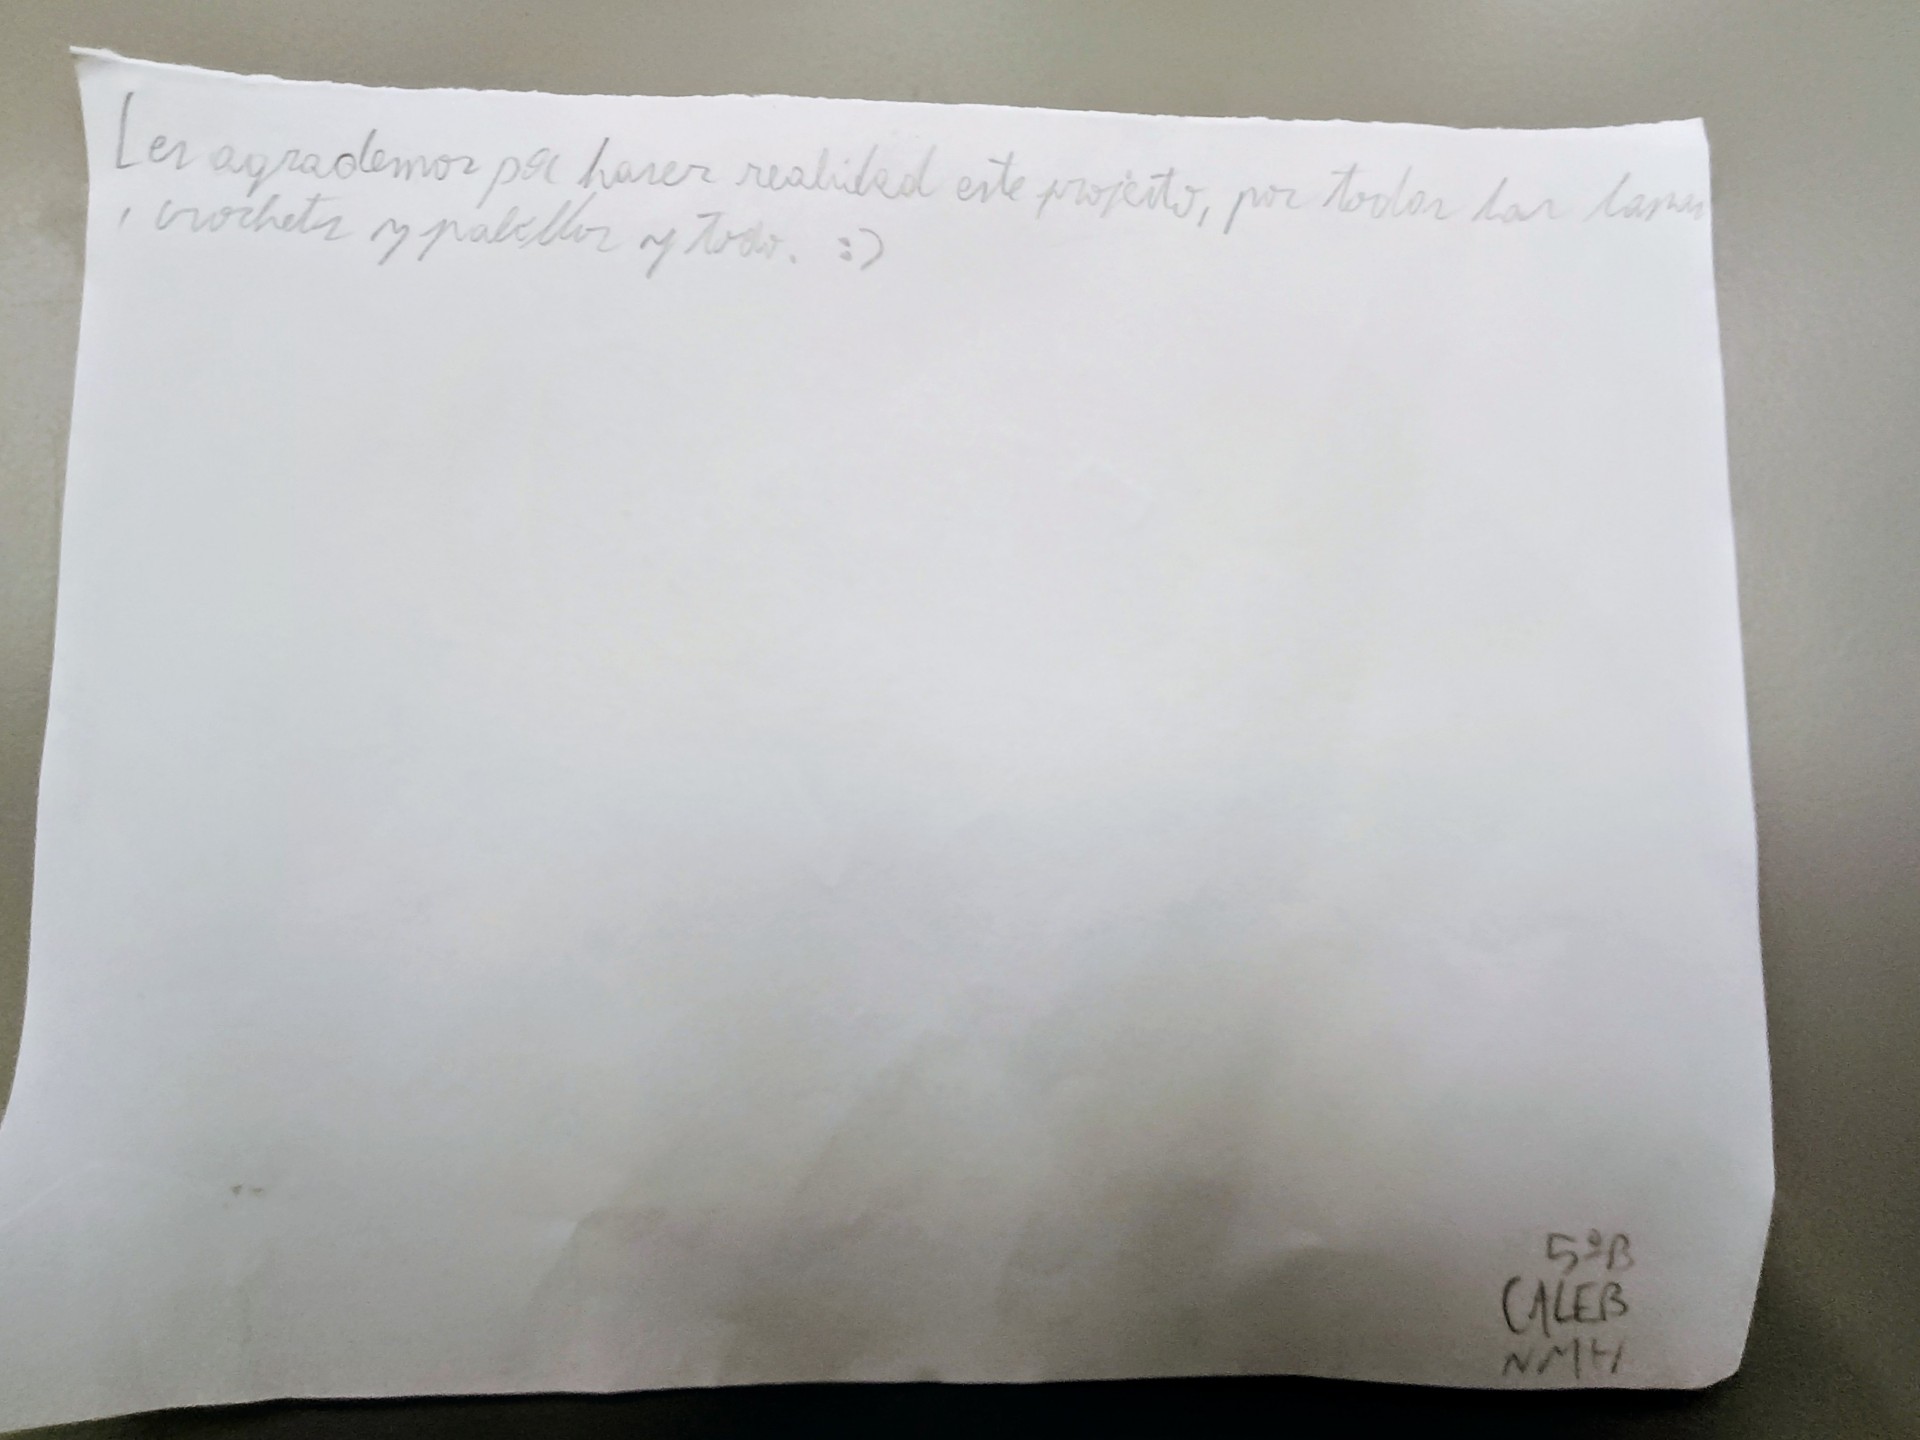 Les agrademos por haser realidad este projecto, por todas las lanas
, crochets y palillos y todo. :)
5ºB
CALEB
NMH